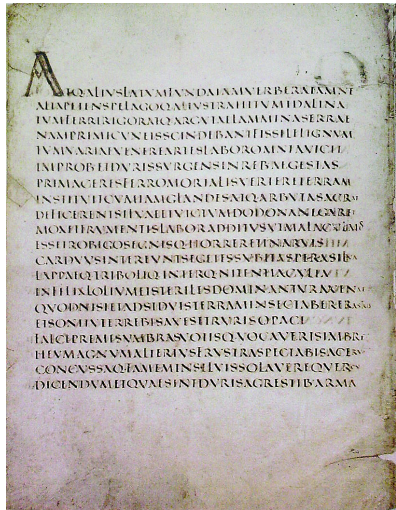 ATQ ALIVS LATVM FVNDA IAM VERBERAT AMNE
ALTA PETENS PELAGOQ ALIVS TRAHIT VMIDA LINA
TVM FERRI RIGOR ATQ ARGVTAE LAMMINA SERRAE
NAM PRIMI CVNEIS SCINDEBANT FISSILE LIGNVM
TVM VARIAE VENERE ARTES LABOR OMNIA VICIT
IMPROB ET DVRIS SVRGENS IN REB AEGESTAS
PRIMA CERES FERRO MORTALIS VERTERE TERRAM
INSTITVIT CVM IAM GLANDES ATQ ARBVTA SACRAE
DEFICERENT SILVAE ET VICTVM DODONA NEGARET
MOX ET FRVMENTIS LABOR ADDITVS VT MALA CVLMOS
ESSET ROBIGO SEGNISQ HORRERET IN ARVIS
CARDVVS INTEREVNT SEGETES SVBIT ASPERA SILVA
LAPPAEQ TRIBOLIQ INTERQ NITENTIA CVLTA
INFELIX LOLIVM ET STERILES DOMINANTVR AVEN
QVOD NISI ET ADSIDVIS TERRAM INSECTABERE RASTRIS
ET SONITV TERREBIS AVES ET RVRIS OPACI
FALCE PREMES VMBRAS VOTISQ VOCAVERIS IMBRE
HEV MAGNVM ALTERIVS FRVSTRA SPECTABIS ACERV
CONCVSSAQ FAMEM IN SILVIS SOLAVERE QVERCV
DICENDVM ET QVAE SINT DVRIS AGRESTIB ARMA